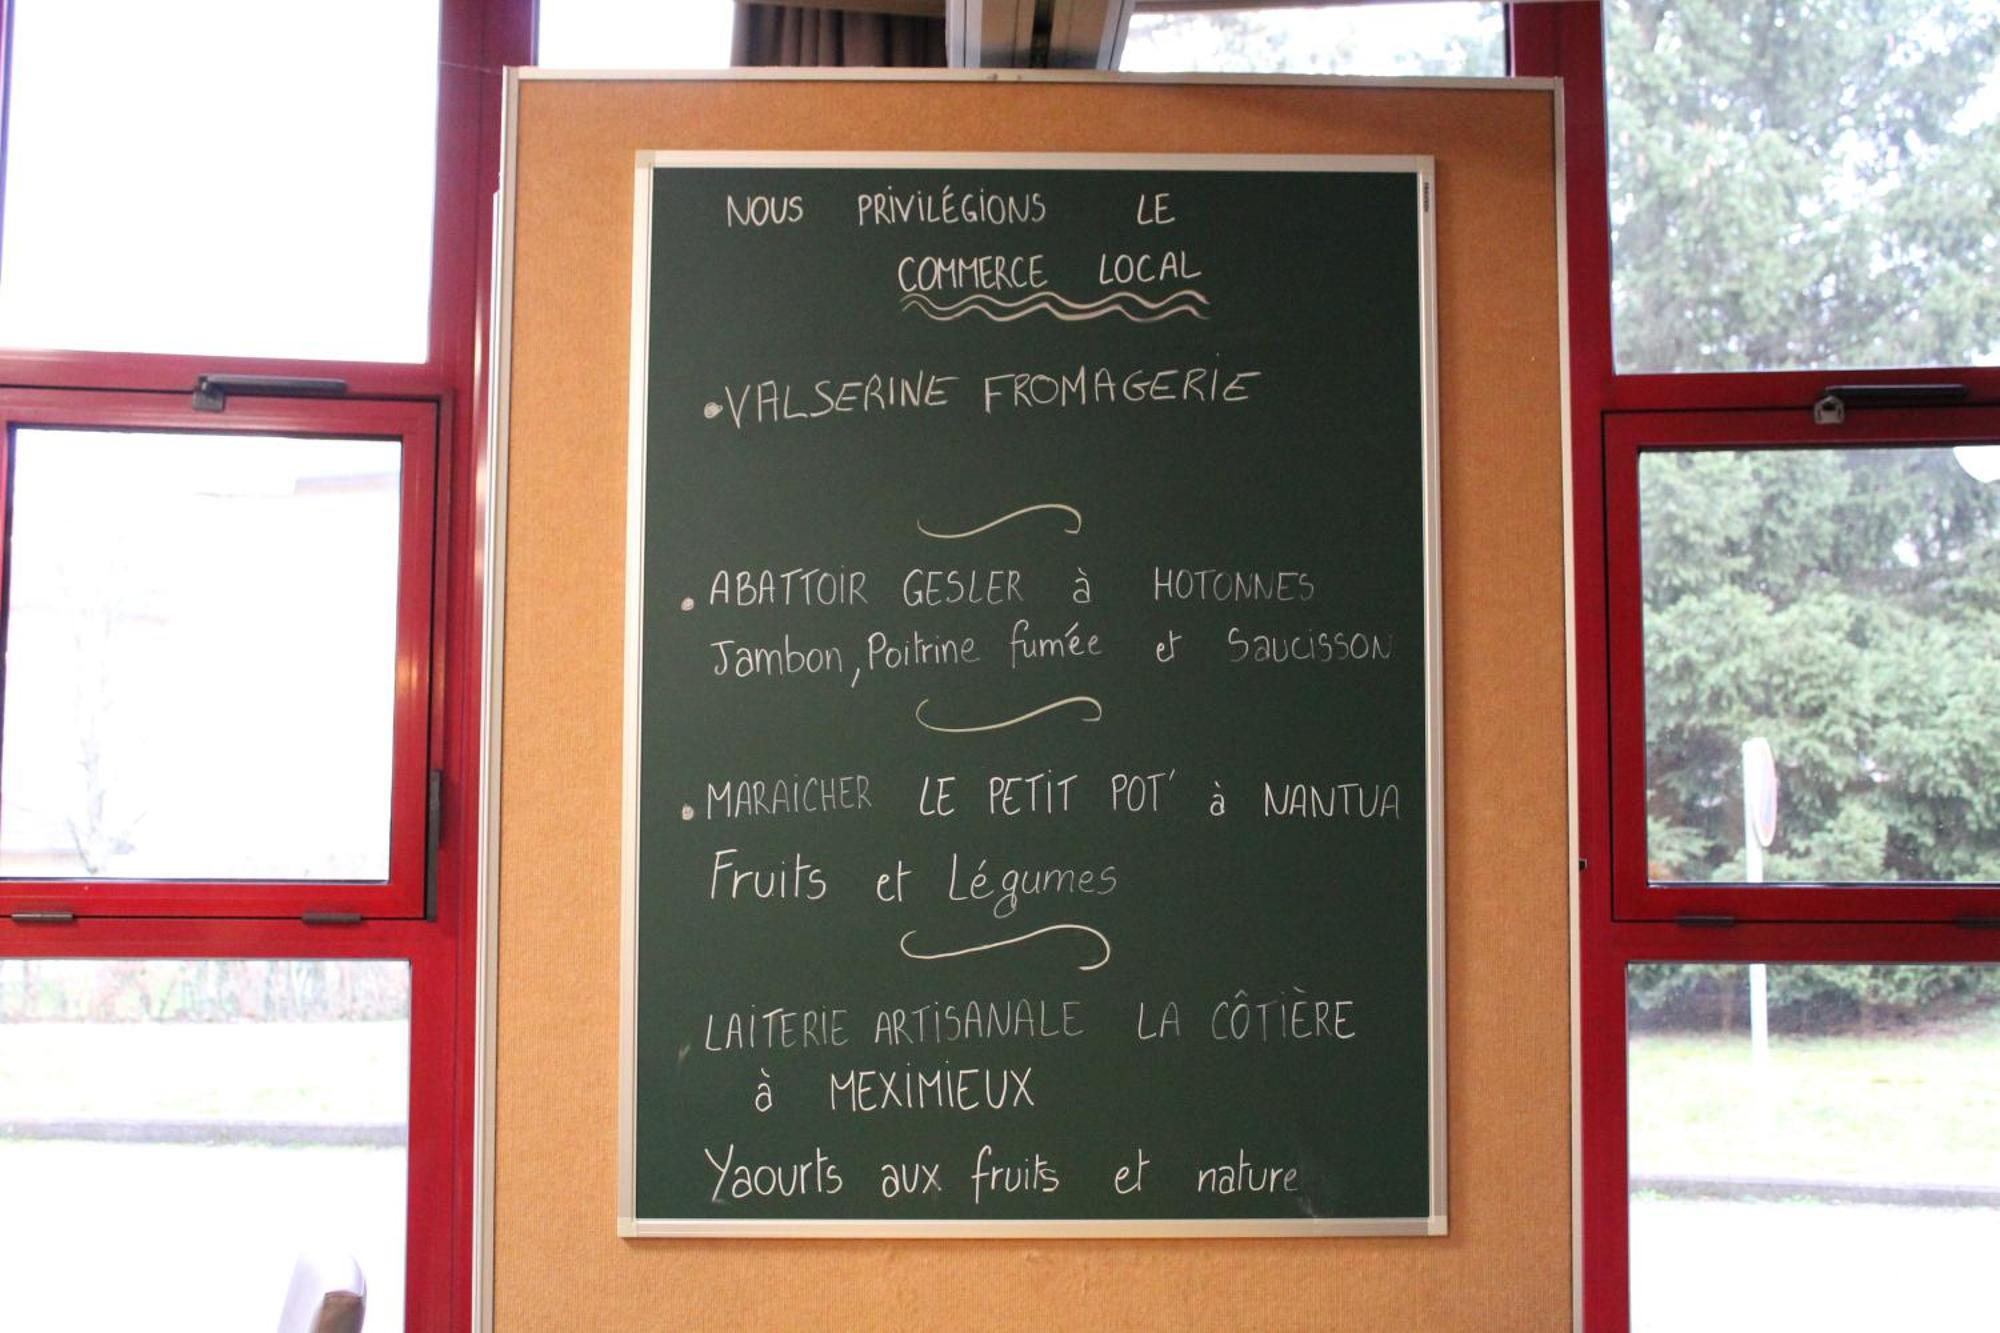 NOUS PRIVILÉGIONS LE
COMMERCE LOCAL
• VALSERINE FROMAGERIE
• ABATTOIR GESLER à HOTONNES
Jambon, Poitrine fumée et Saucisson
• MARAICHER LE PETIT POT' à NANTUA
Fruits et Légumes
LAITERIE ARTISANALE LA CÔTIÈRE
à MEXIMIEUX
Yaourts aux fruits et nature